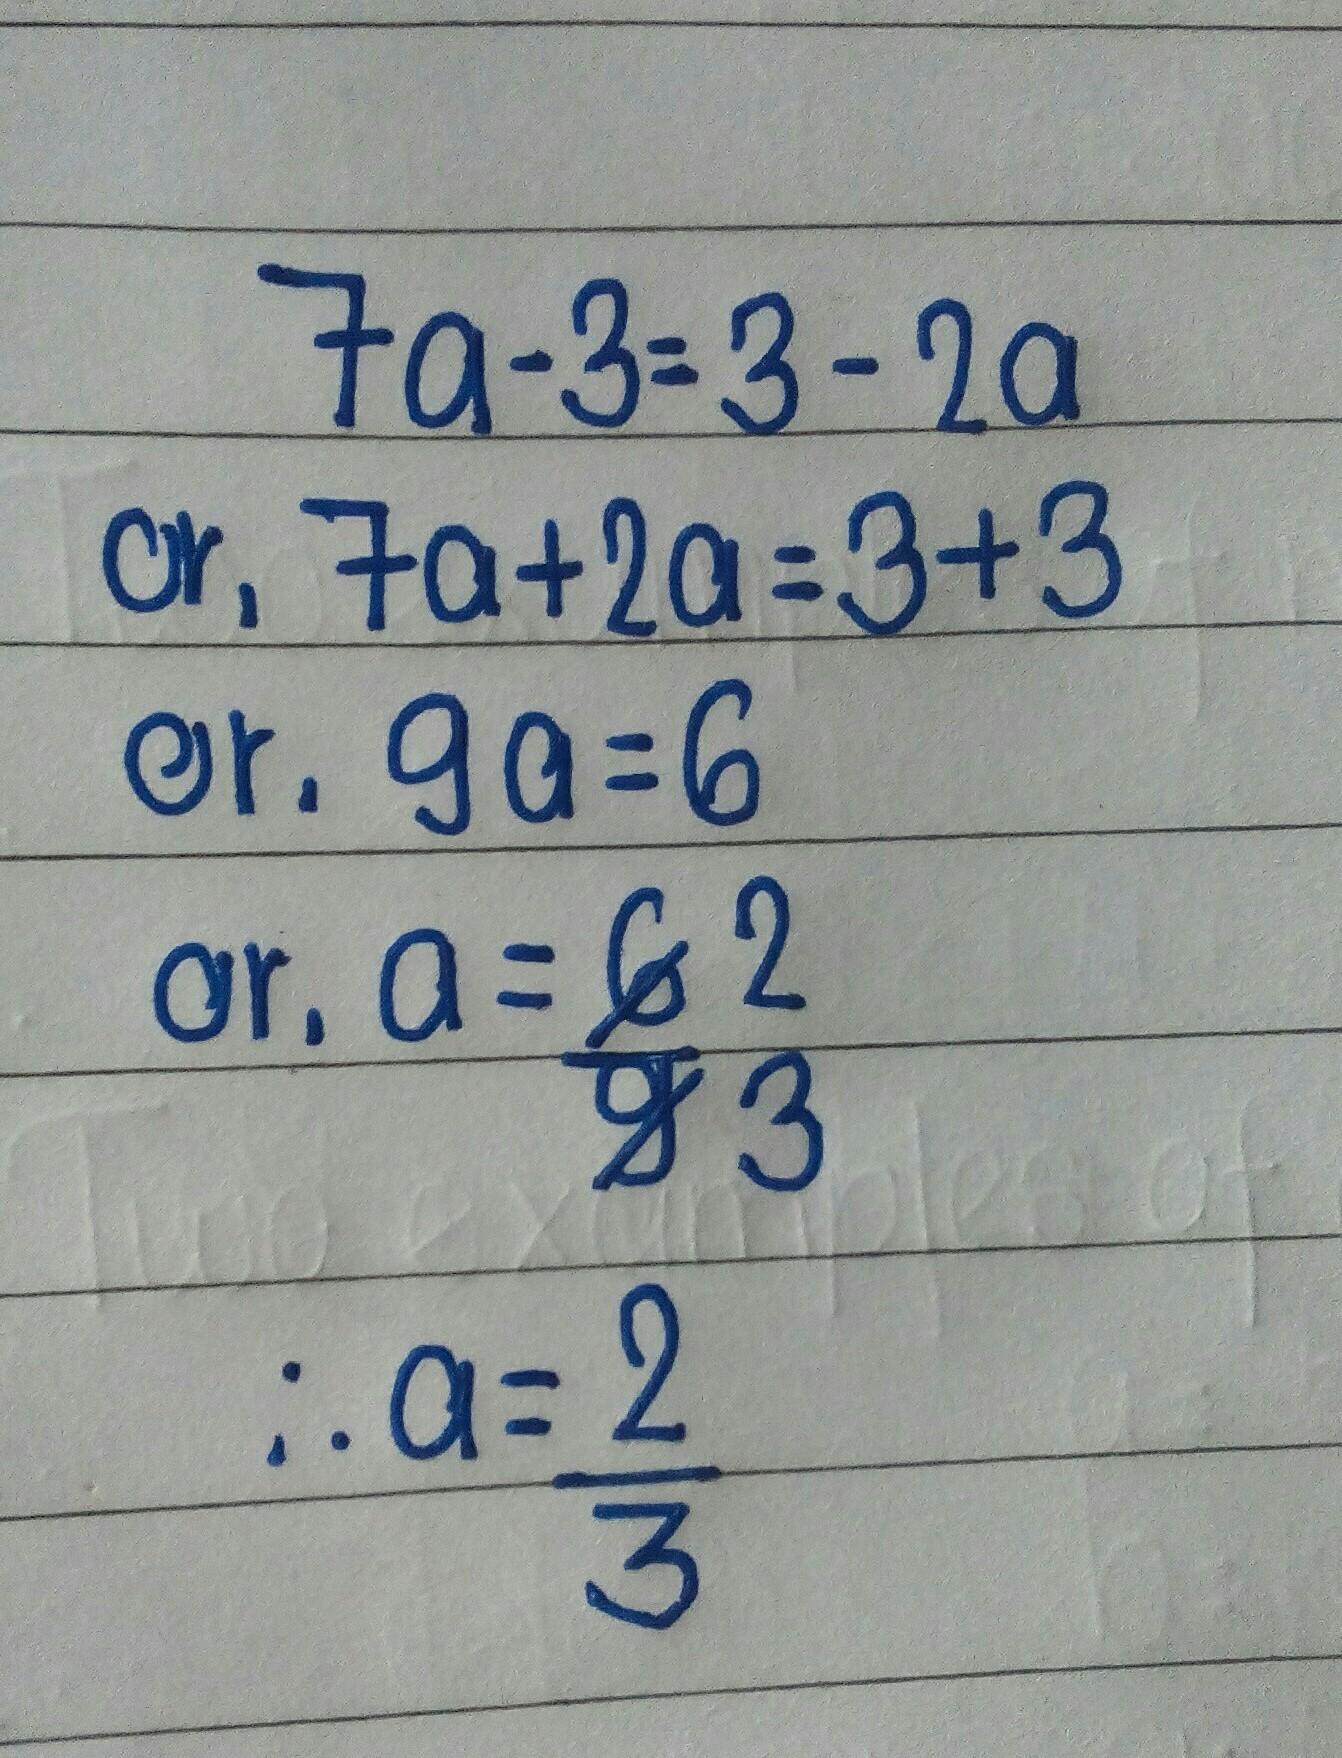 7a-3=3-2a
or, 7a+2a=3+3
or. 9a=6
or, a=6 2
9 3
∴ a=2
3